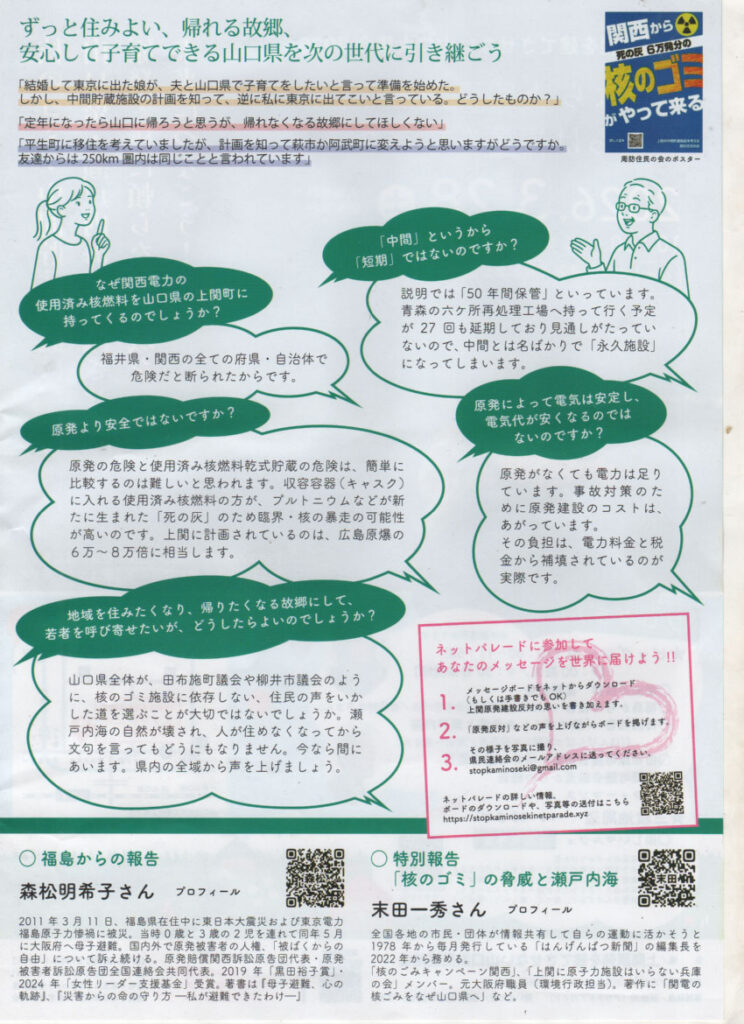 ずっと住みよい、帰れる故郷、
安心して子育てできる山口県を次の世代に引き継ごう
「結婚して東京に出た娘が、夫と山口県で子育てをしたいと言って準備を始めた。
しかし、中間貯蔵施設の計画を知って、逆に私に東京に出てこいと言っている。どうしたものか?」
「定年になったら山口に帰ろうと思うが、帰れなくなる故郷にしてほしくない」
「平生町に移住を考えていましたが、計画を知って萩市か阿武町に変えようと思いますがどうですか。
友達からは250km 圏内は同じことと言われています」
関西から
死の灰 6万発分の
核のゴミ
がやって来る
周防住民の会のポスター
なぜ関西電力の
使用済み核燃料を山口県の上関町に
持ってくるのでしょうか?
福井県・関西の全ての府県・自治体で
危険だと断られたからです。
「中間」というから
「短期」ではないのですか?
説明では「50 年間保管」といっています。
青森の六ケ所再処理工場へ持って行く予定
が 27 回も延期しており見通しがたってい
ないので、中間とは名ばかりで「永久施設」
になってしまいます。
原発より安全ではないですか?
原発の危険と使用済み核燃料乾式貯蔵の危険は、簡単に
比較するのは難しいと思われます。収容容器(キャスク)
に入れる使用済み核燃料の方が、プルトニウムなどが新
たに生まれた「死の灰」のため臨界・核の暴走の可能性
が高いのです。上関に計画されているのは、広島原爆の
6万〜8万倍に相当します。
原発によって電気は安定し、
電気代が安くなるのでは
ないのですか?
原発がなくても電力は足り
ています。事故対策のた
めに原発建設のコストは、
あがっています。
その負担は、電力料金と税
金から補填されているのが
実際です。
地域を住みたくなり、帰りたくなる故郷にして、
若者を呼び寄せたいが、どうしたらよいのでしょうか?
山口県全体が、田布施町議会や柳井市議会のよう
に、核のゴミ施設に依存しない、住民の声をいか
した道を選ぶことが大切ではないでしょうか。瀬
戸内海の自然が壊され、人が住めなくなってから
文句を言ってもどうにもなりません。今なら間に
あいます。県内の全域から声を上げましょう。
ネットパレードに参加して
あなたのメッセージを世界に届けよう!!
1. メッセージボードをネットからダウンロード
(もしくは手書きでも OK)
上関原発建設反対の思いを書き加えます。
2. 「原発反対」などの声を上げながらボードを掲げます。
3. その様子を写真に撮り、
県民連絡会のメールアドレスに送ってください。
stopkaminoseki@gmail.com
ネットパレードの詳しい情報、
ボードのダウンロードや、写真等の送付はこちら
https://stopkaminosekinetparade.xyz
○ 福島からの報告
森松明希子さん プロフィール
2011 年 3 月 11 日、福島県在住中に東日本大震災および東京電力
福島原子力惨禍に被災。当時 0 歳と 3 歳の 2 児を連れて同年 5 月
に大阪府へ母子避難。国内外で原発被害者の人権、「被ばくからの
自由」について訴え続ける。原発賠償関西訴訟原告団代表・原発
被害者訴訟原告団全国連絡会共同代表。2019 年「黒田裕子賞」・
2024 年「女性リーダー支援基金」受賞。著書は『母子避難、心の
軌跡』、『災害からの命の守り方 ―私が避難できたわけ―』
○ 特別報告
「核のゴミ」の脅威と瀬戸内海
末田一秀さん プロフィール
末田
全国各地の市民・団体が情報共有して自らの運動に活かそうと
1978 年から毎月発行している「はんげんぱつ新聞」の編集長を
2022 年から務める。
「核のごみキャンペーン関西」、「上関に原子力施設はいらない兵庫
の会」メンバー。元大阪府職員(環境行政担当)。著作に「関電の
核ごみをなぜ山口県へ」など。